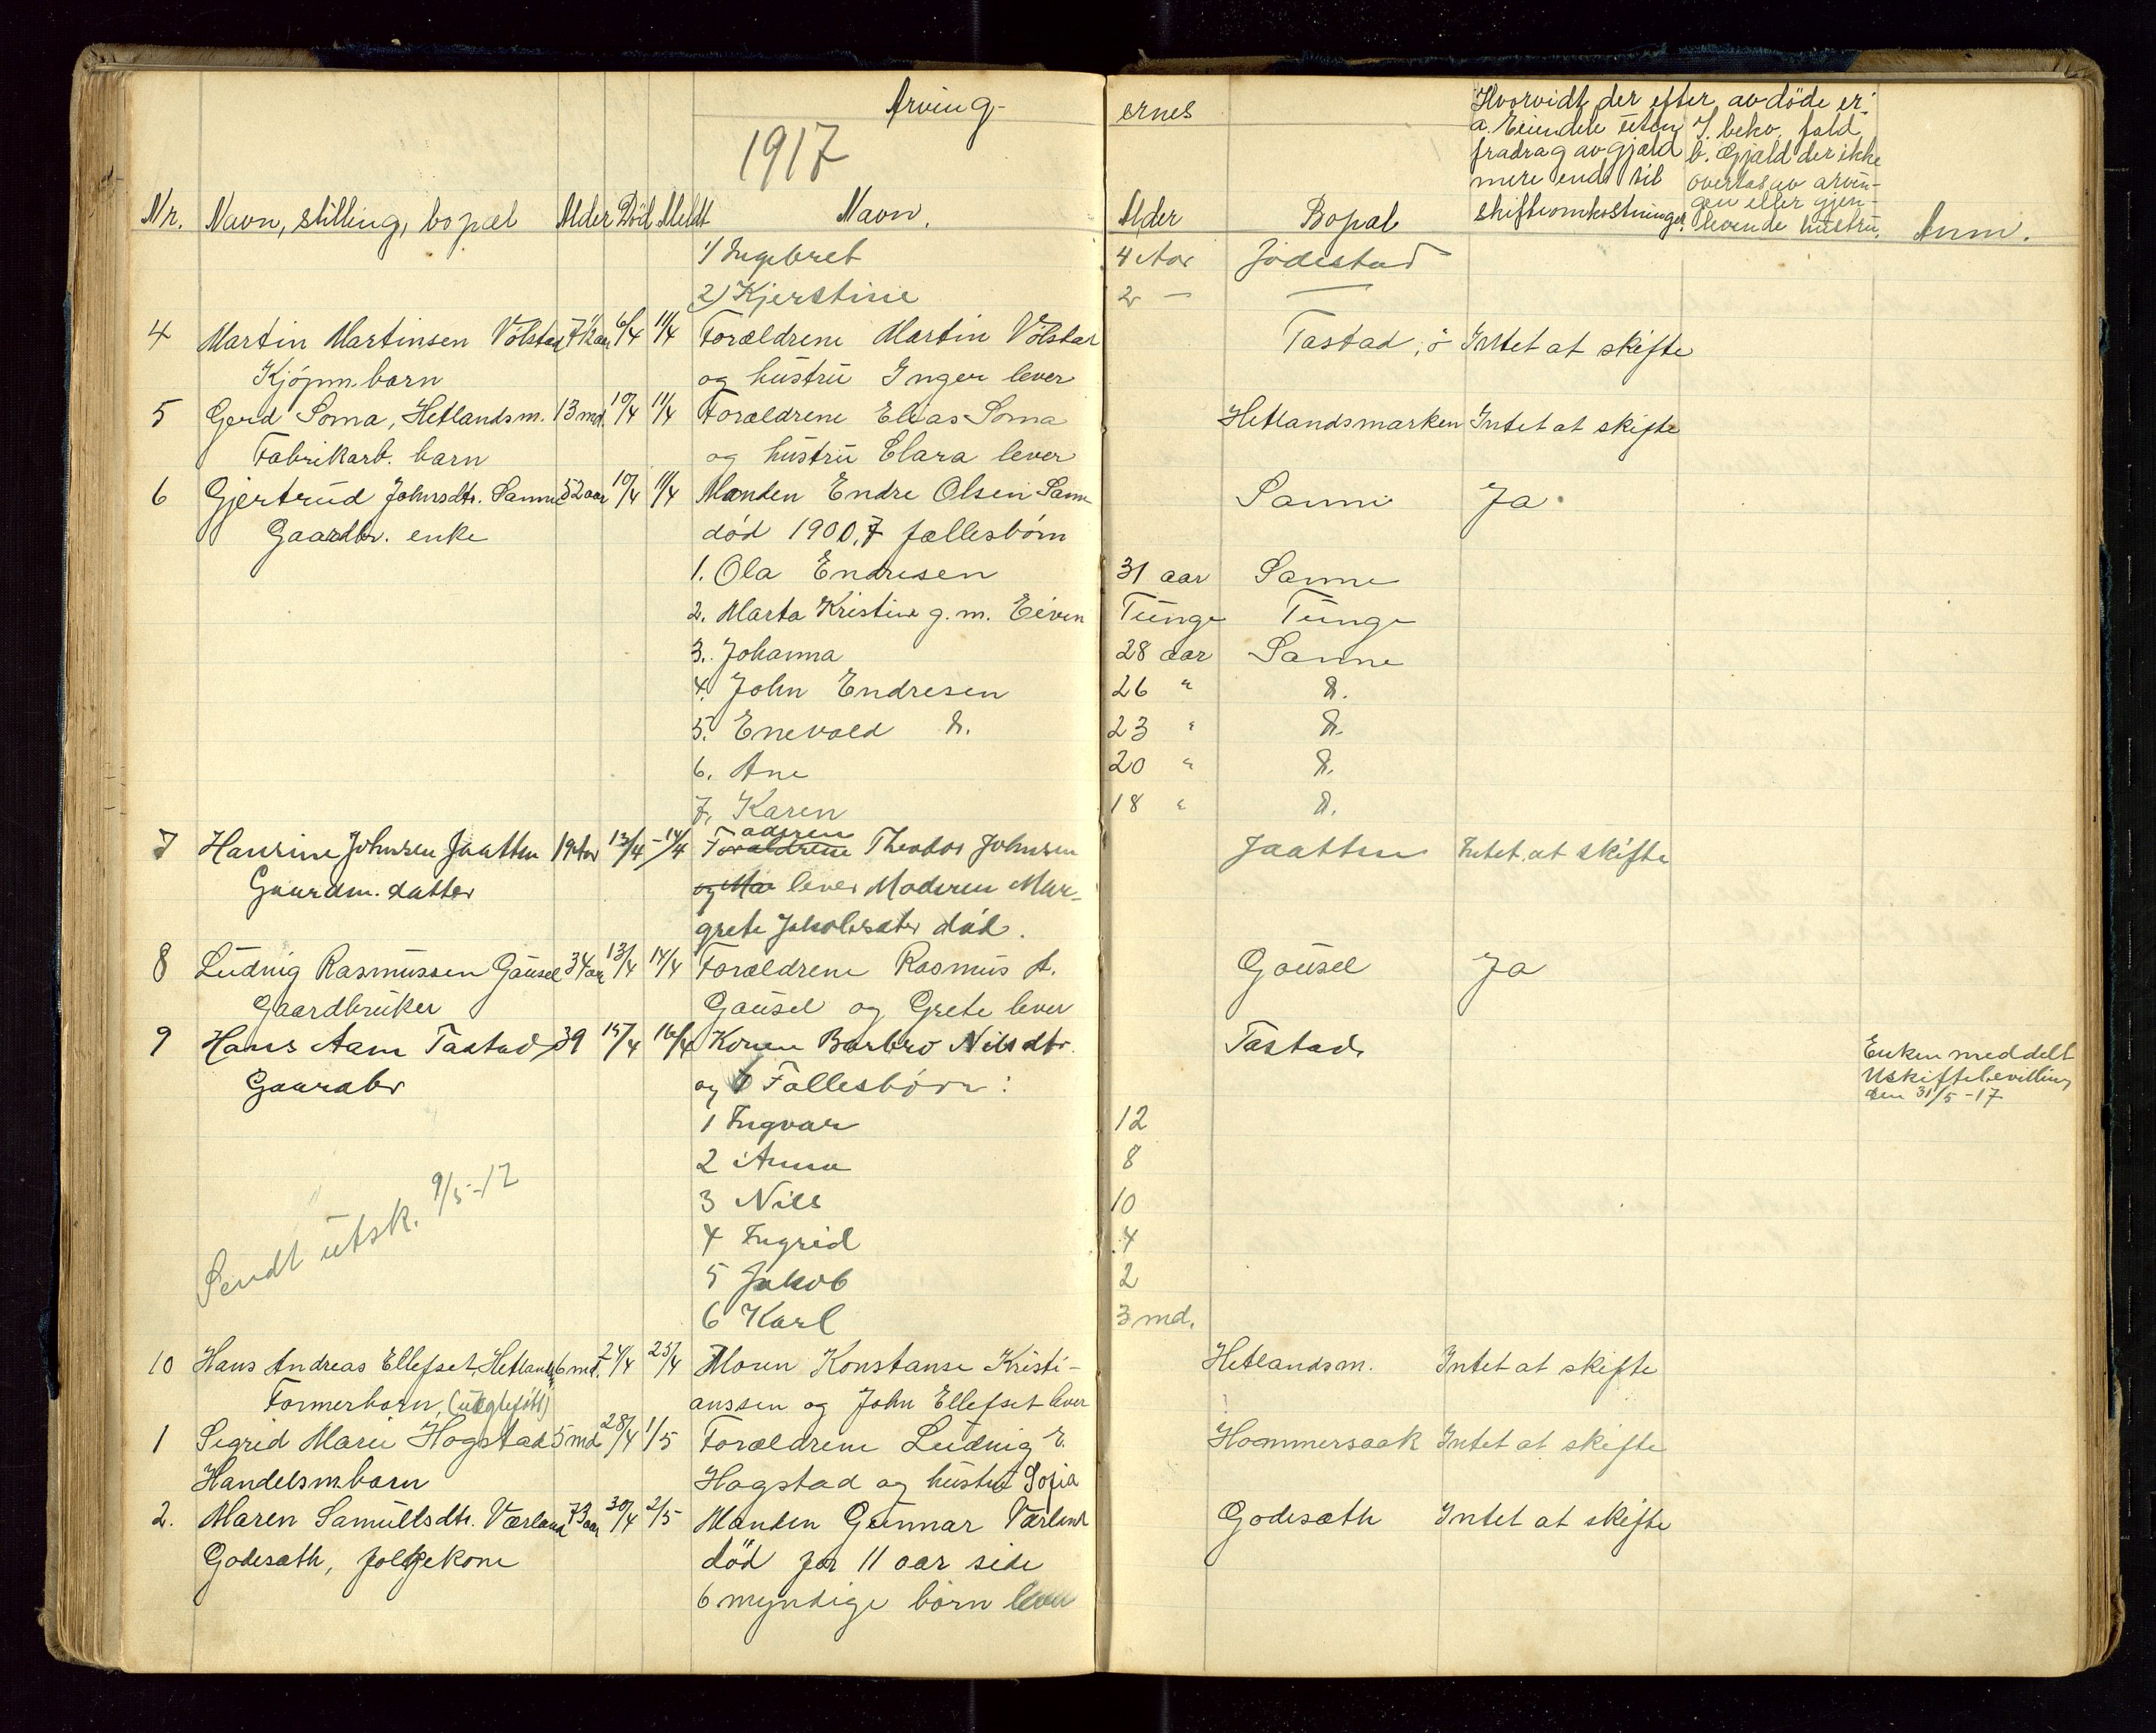 Arving-
ernes
1917
Hvorvidt der efter avdöde er:
a. Eiendele uten
fradrag av gjæld
mere end til
skifteomkostninger.
I. beho. fald
b. Gjæld der ikke
overtas av arvin-
gen eller gjen-
levende hustru.
Nr. Navn, stilling, bopæl Alder Död Meldt Navn. Alder Bopæl Anm.
1) Ingebret 4 Aar Jödestad
2) Kjerstine 2 — —
4 Martin Martinsen Völstad 7½ aar 6/4 11/4 Forældrene Martin Völstad Tastad, ö Intet at skifte
Kjöpm. barn og hustru Inger lever
5 Gerd Soma, Hetlandsm. 13 md. 10/4 11/4 Forældrene Elias Soma Hetlandsmarken Intet at skifte
Fabrikarb. barn og hustru Clara lever
6 Gjertrud Johnsdtr. Sanne 52 aar 10/4 11/4 Manden Endre Olsen Sanne Sanne Ja
Gaardbr. enke död 1900, 7 fællesbörn
1. Ola Endresen 31 aar Sanne
2. Marta Kristine g. m. Eiven Tunge Tunge
3. Johanna 28 aar Sanne
4. John Endresen 26 " d.
5. Enevald d. 23 " d.
6. Ane 20 " d.
7. Karen 18 " d.
7 Hansine Johnsen Jaatten 19 Aar 13/4 14/4 Forældrene aderen Theodor Johnsen Jaatten Intet at skifte
Gaardm. datter og Ma lever Moderen Mar-
grete Jakobsdatter död.
8 Ludvig Rasmussen Gausel 34 aar 13/4 14/4 Forældrene Rasmus A. Gausel Ja
Gaardbruker Gausel og Grete lever
9 Hans Aam Tastad 39 15/4 16/4 Konen Barbro Nilsdtr. Tastad Enken meddelt
Gaardbr og Fællesbörn: Uskiftebevilling
den 31/5-17
1 Ingvar 12
2 Anna 8
Sendt utsk. 9/5-17
3 Nils 10
4 Ingrid 4
5 Jakob 2
6 Karl 3 md.
10 Hans Andreas Ellefset, Hetlandsm. 6 md. 24/4 25/4 Moren Konstanse Kristi- Hetlandsm. Intet at skifte
Formerbarn, (uegtefött) anssen og John Ellefset lever
1 Sigrid Marie Hogstad 5 md 28/4 1/5 Forældrene Ludvig E. Hommersaak Intet at skifte
Handelsm. barn Hogstad og hustru Sofia
2. Maren Samuelsdtr. Værland 73 aar 30/4 2/5 Manden Gunnar Værland Godesæth Intet at skifte
Godesæth, folgekone död for 11 aar side
6 myndige börn lever